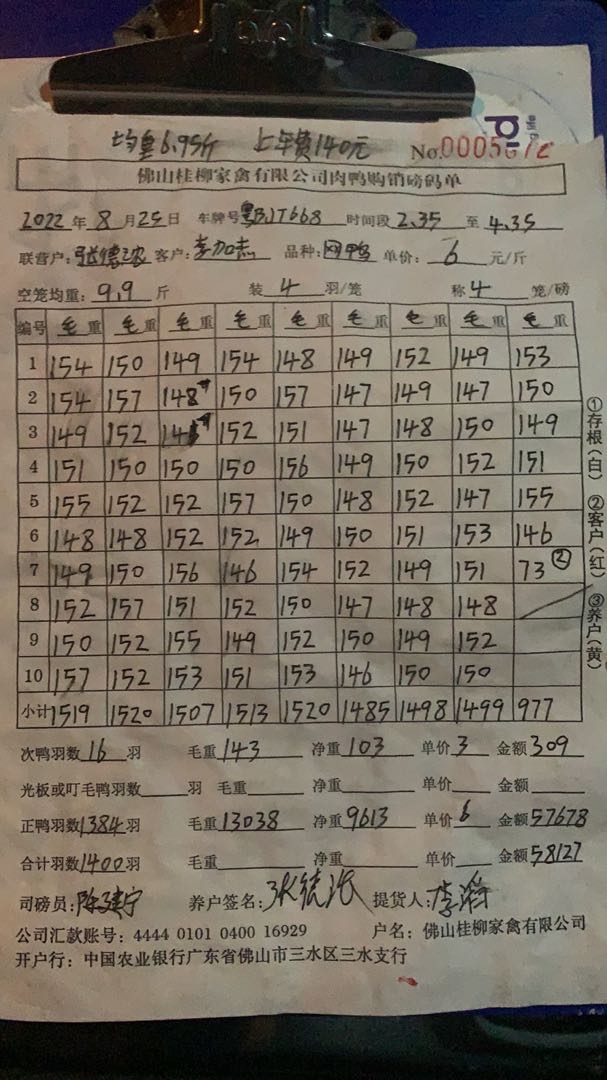 均重6.95斤 上车费140元
佛山桂柳家禽有限公司肉鸭购销磅码单
2022年8月25日 车牌号粤BJT668 时间段2.35至4.35
联营户: 张德 客户: 李加志 品种: 网鸭 单价: 6 元/斤
空笼均重: 9.9斤 装4羽/笼 称4笼/磅
编号 毛重 毛重 毛重 毛重 毛重 毛重 毛重 毛重 毛重
1 154 150 149 154 148 149 152 149 153
2 154 157 148 150 157 147 149 147 150
3 149 152 152 151 147 148 150 149
4 151 150 150 150 156 149 150 152 151
5 155 152 152 157 150 148 152 147 155
6 148 148 152 152 149 150 151 153 146
7 149 150 156 146 154 152 149 151 73②
8 152 157 151 152 150 147 148 148
9 150 152 155 149 152 150 149 152
10 157 152 153 151 153 146 150 150
小计 1519 1520 1507 1513 1520 1485 1498 1499 977
①存根(白) ②客户(红) ③养户(黄)
次鸭羽数16羽 毛重143 净重103 单价3 金额309
光板或叮毛鸭羽数 羽 毛重 净重 单价 金额
正鸭羽数1384羽 毛重13038 净重9613 单价6 金额57678
合计羽数1400羽 毛重 净重 单价 金额58127
司磅员: 陈建宁 养户签名: 张德 提货人: 李
公司汇款账号: 4444 0101 0400 16929 户名: 佛山桂柳家禽有限公司
开户行: 中国农业银行广东省佛山市三水区三水支行